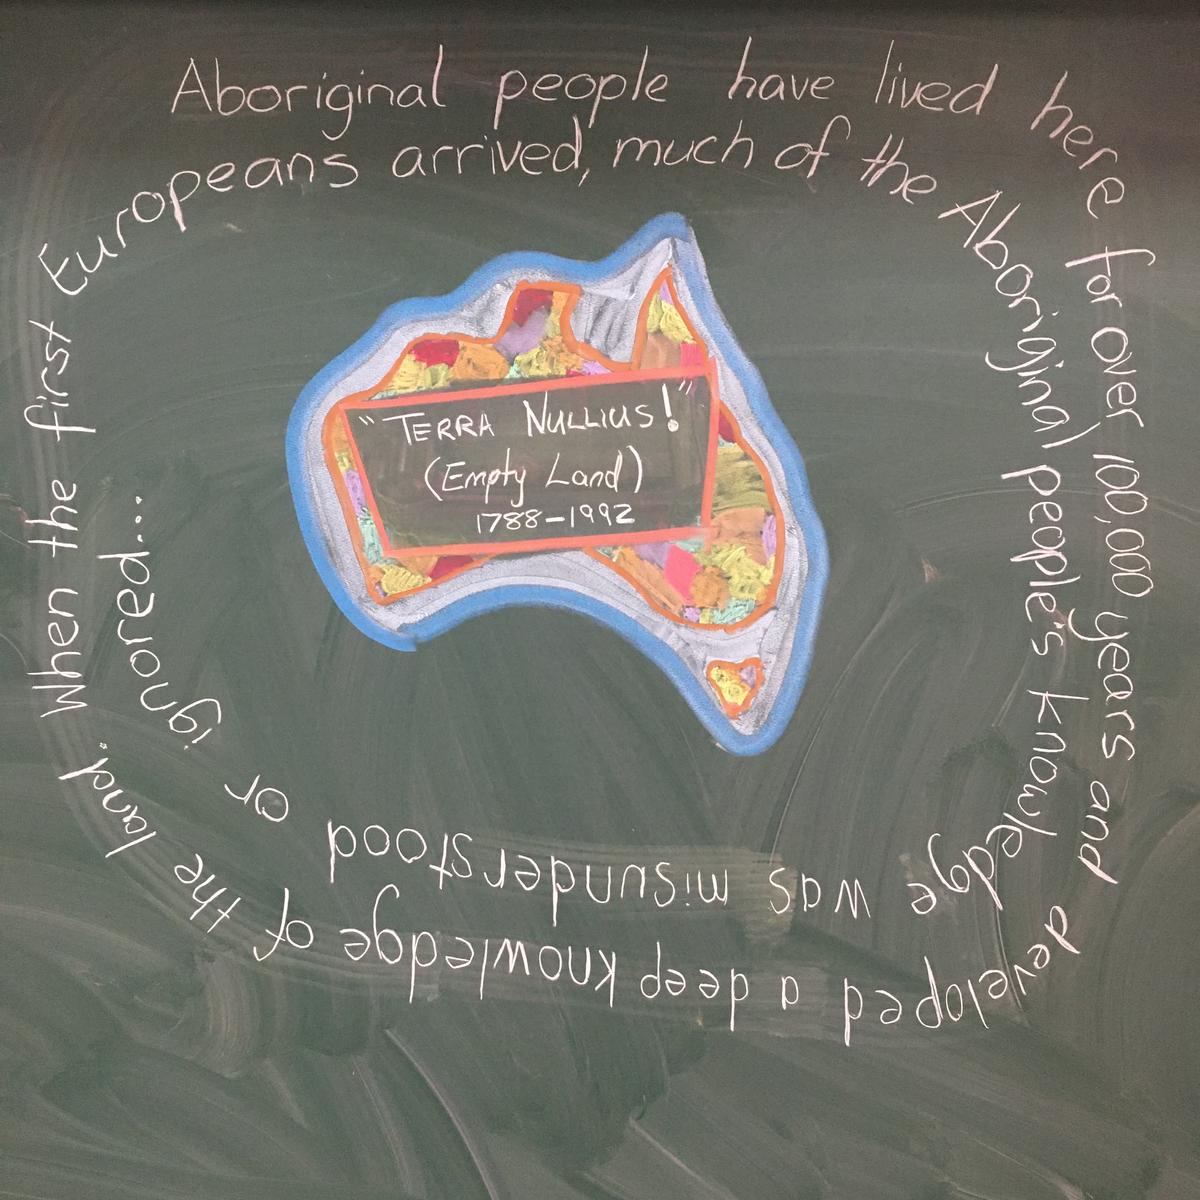 Aboriginal people have lived here for over 100,000 years and developed a deep knowledge of the land. When the first Europeans arrived, much of the Aboriginal people's knowledge was misunderstood or ignored...
"TERRA NULLIUS!"
(Empty Land)
1788-1992